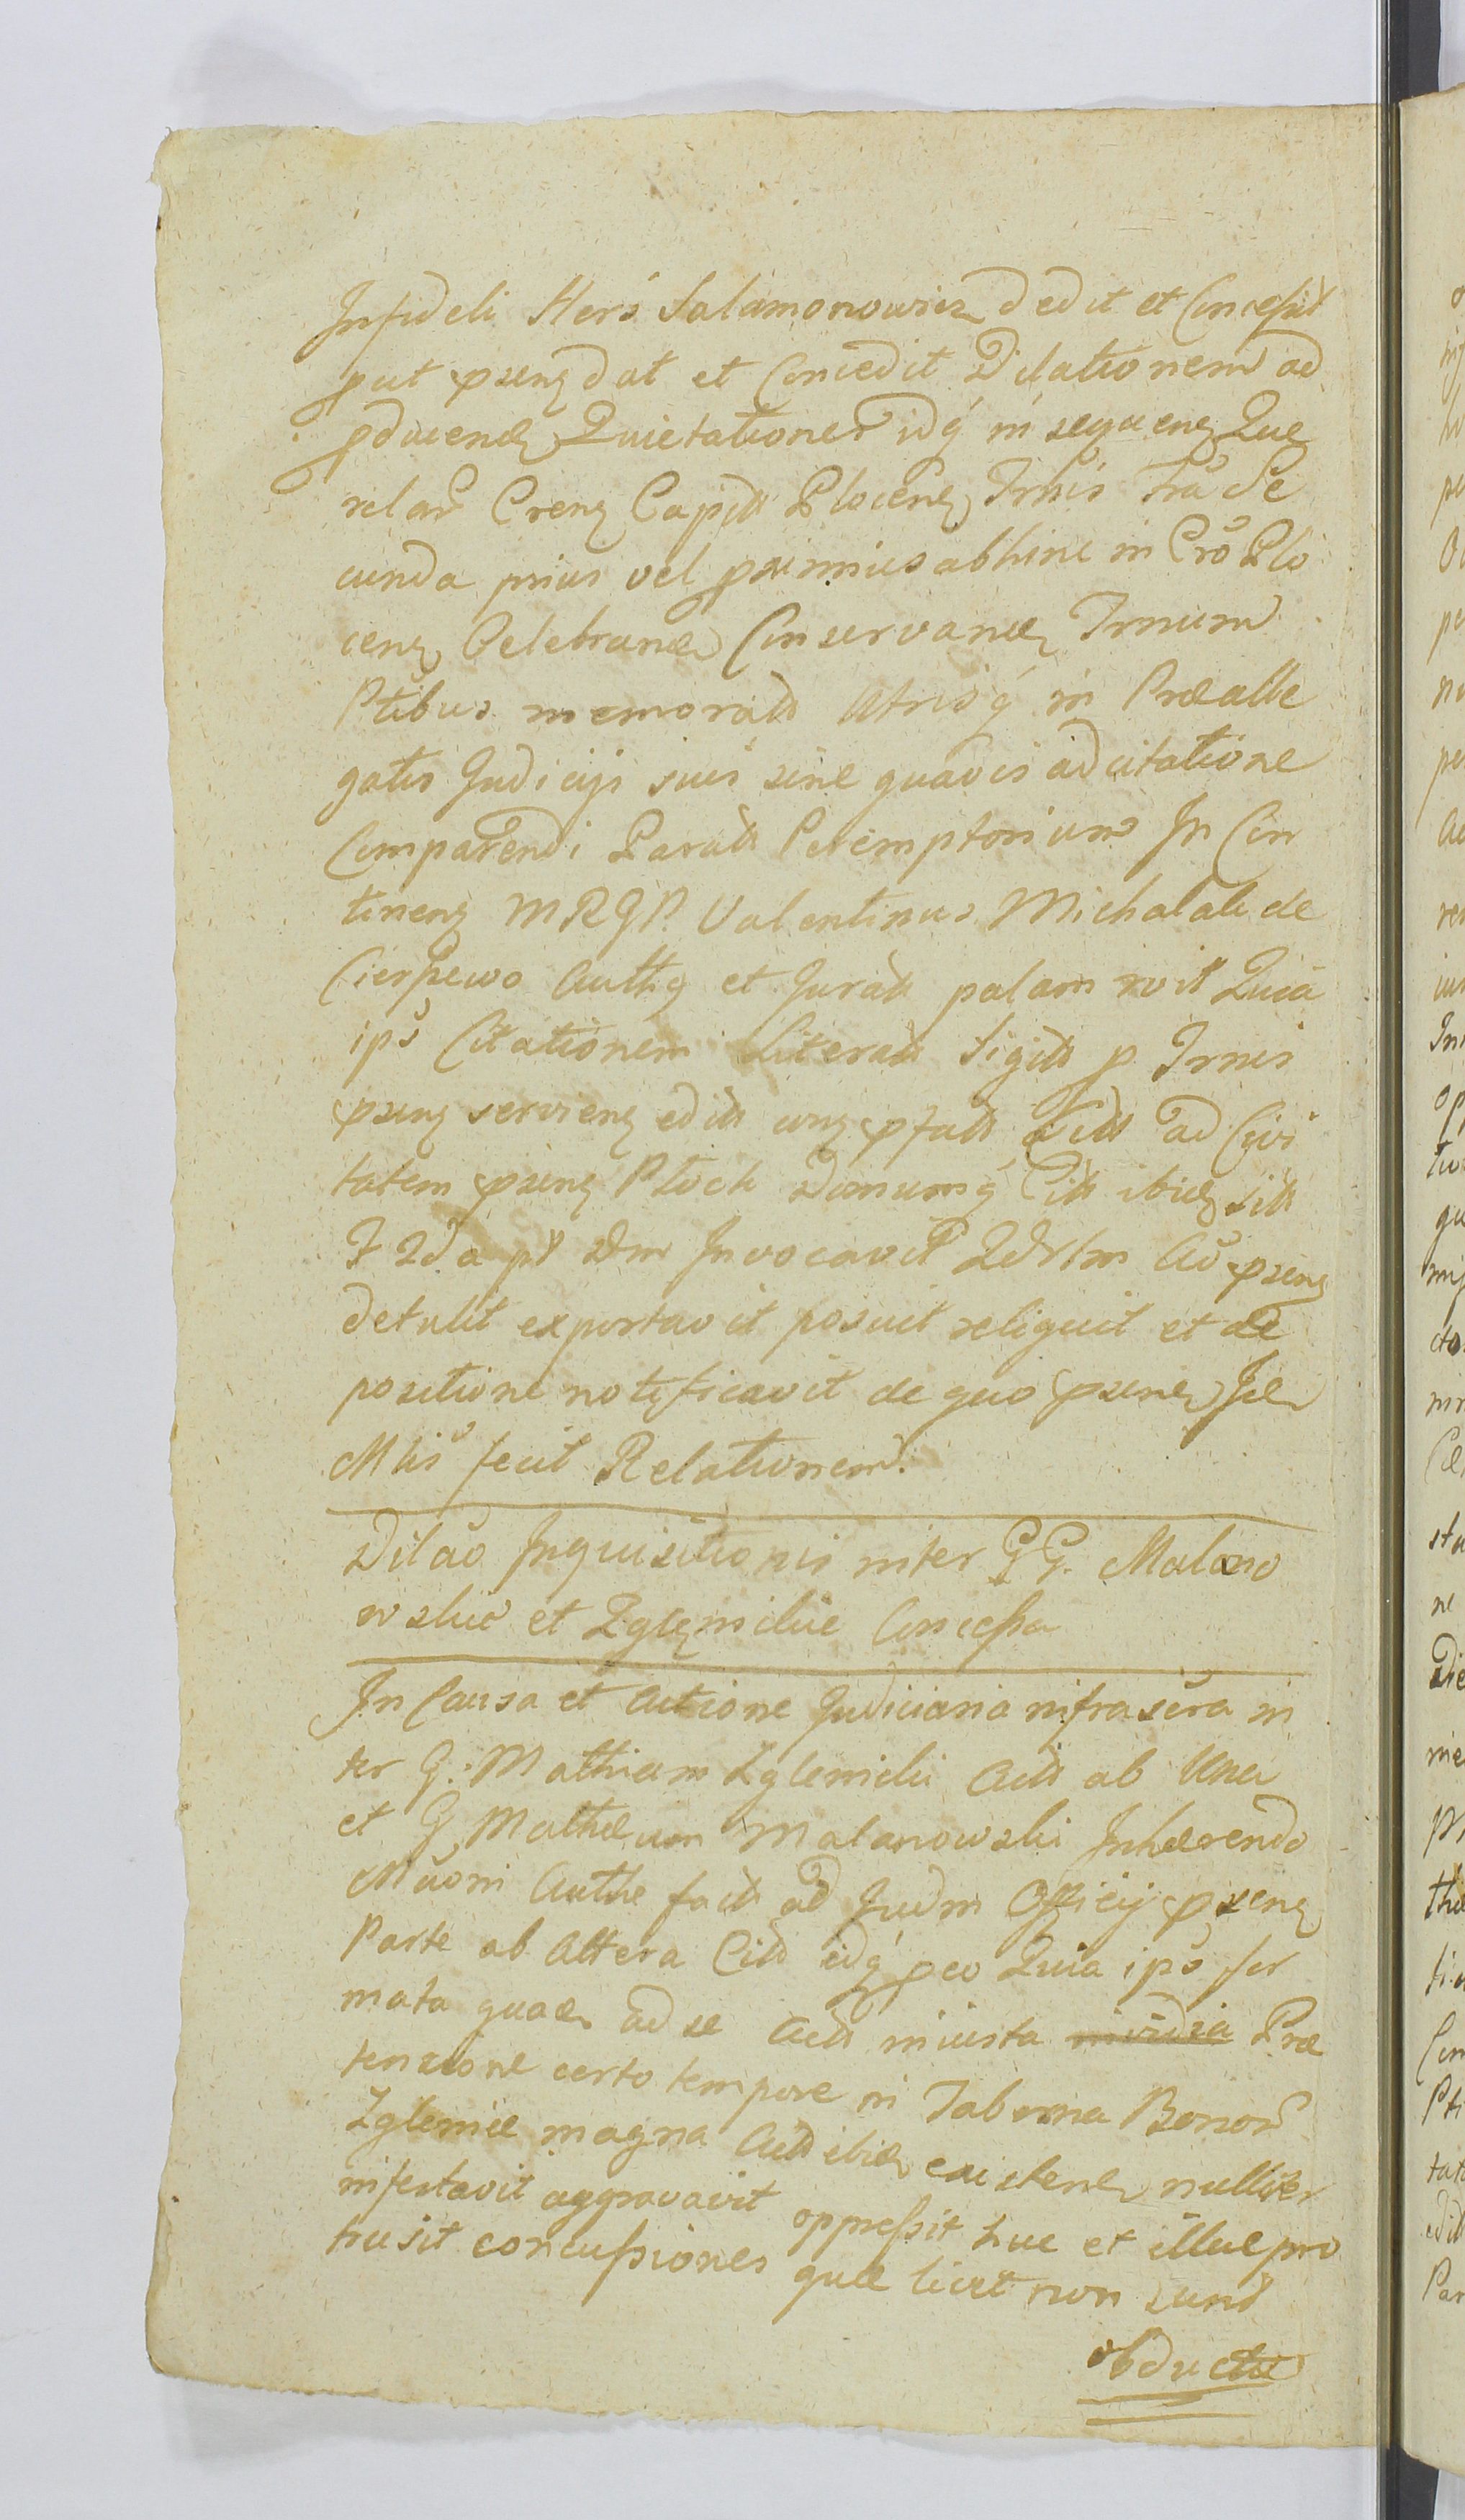 Infideli Herś Salamonowicz dedit et Concessit
put psenz dat et Concedit Dilationem ad
pducend Quietationes idq in sequenz Que
relar Crenz Capitt Plocenz Trnis Fra Se
cunda prius vel pximius abhinc in Cro Plo
cenz Celebrand Conservand Trnum
Ptibus memoratt Utrisq in Prealle
gatis Judicijs suis sine quavis adcitatione
Comparendi Paratt Peremptorium In Con
tinenz MRGP. Valentinus Michalak de
Cierpewo Authq et Juratt palam rvit Quia
ips Citationem Literatt Sigitt p Trnis
psenz servienz editt cnz pfatt Citt ad Civi
tatem psenz Płock Domumq Citt ibidz sitt
F 2da pt Dni Invocavit Qdrlm Ao psenz
detulit exportavit posuit reliquit et de
positione notificavit de quo psenz Jcl
Mtis fecit Relationem.
Dilao Inquisitionis inter GG. Malano
wskie et Zglenickie Concessa
In Causa et Actione Judiciaria infrascra in
ter G. Mathiam Zglenicki Actt ab Una
et G Mathæum Malanowski Inhærendo
Muoni Authe factt ad Judm Officij psenz
Parte ab Altera Citt idq peo Quia ips for
mata quad ad se Actt iniusta Præ
tensione certo tempore in Taberna Bonor
Zglenice magna Actt ibid existenz nulliter
infestavit aggravavit oppressit huc et illuc pro
trusit concussiones quæ licet non sunt
obductæ